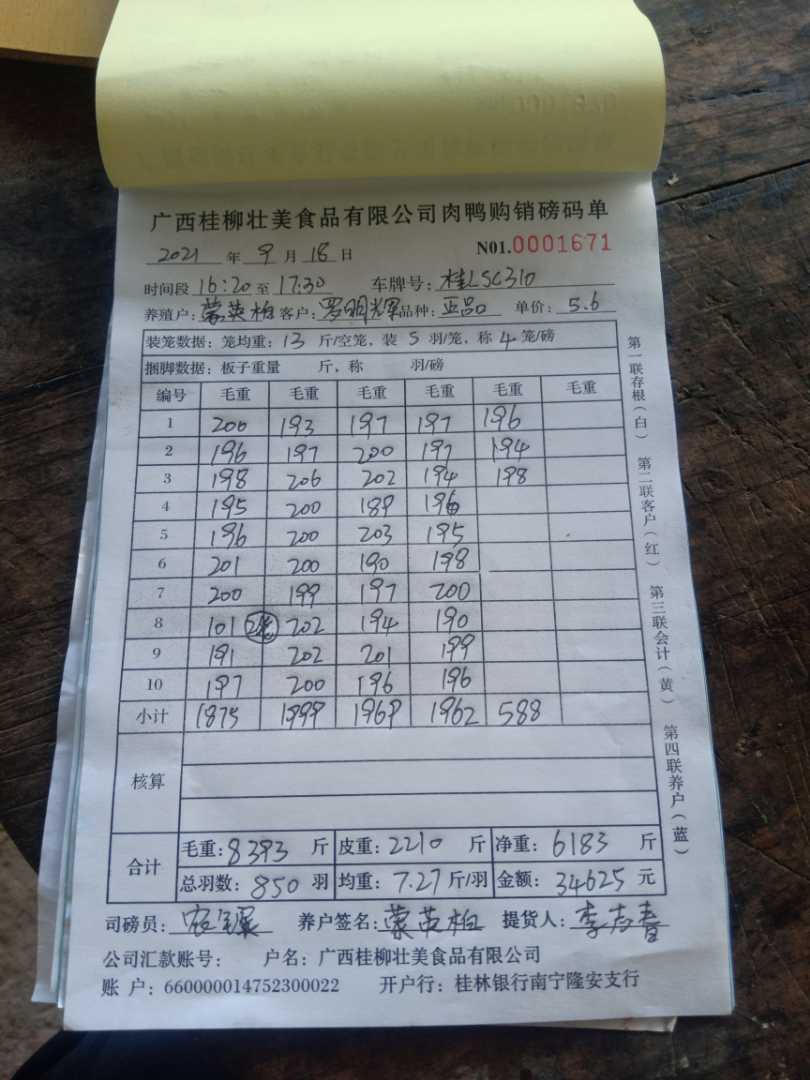 广西桂柳壮美食品有限公司肉鸭购销磅码单
2021 年 9 月 18 日 N01.0001671
时间段 16:20 至 17:30 车牌号: 桂LSC310
养殖户: 蒙英柏 客户: 罗明辉 品种: 正品 单价: 5.6
装笼数据: 笼均重: 13 斤/空笼, 装 5 羽/笼, 称 4 笼/磅
捆脚数据: 板子重量 斤, 称 羽/磅
编号 毛重 毛重 毛重 毛重 毛重 毛重
1 200 193 197 197 196
2 196 197 200 197 194
3 198 206 202 194 198
4 195 200 189 196
5 196 200 203 195
6 201 200 190 198
7 200 199 197 200
8 101 2笼 202 194 190
9 191 202 201 199
10 197 200 196 196
小计 1875 1999 1969 1962 588
核算
合计 毛重: 8393 斤 皮重: 2210 斤 净重: 6183 斤
总羽数: 850 羽 均重: 7.27 斤/羽 金额: 34625 元
司磅员: 养户签名: 蒙英柏 提货人: 李志春
公司汇款账号: 户名: 广西桂柳壮美食品有限公司
账 户: 660000014752300022 开户行: 桂林银行南宁隆安支行
第一联存根(白) 第二联客户(红) 第三联会计(黄) 第四联养户(蓝)